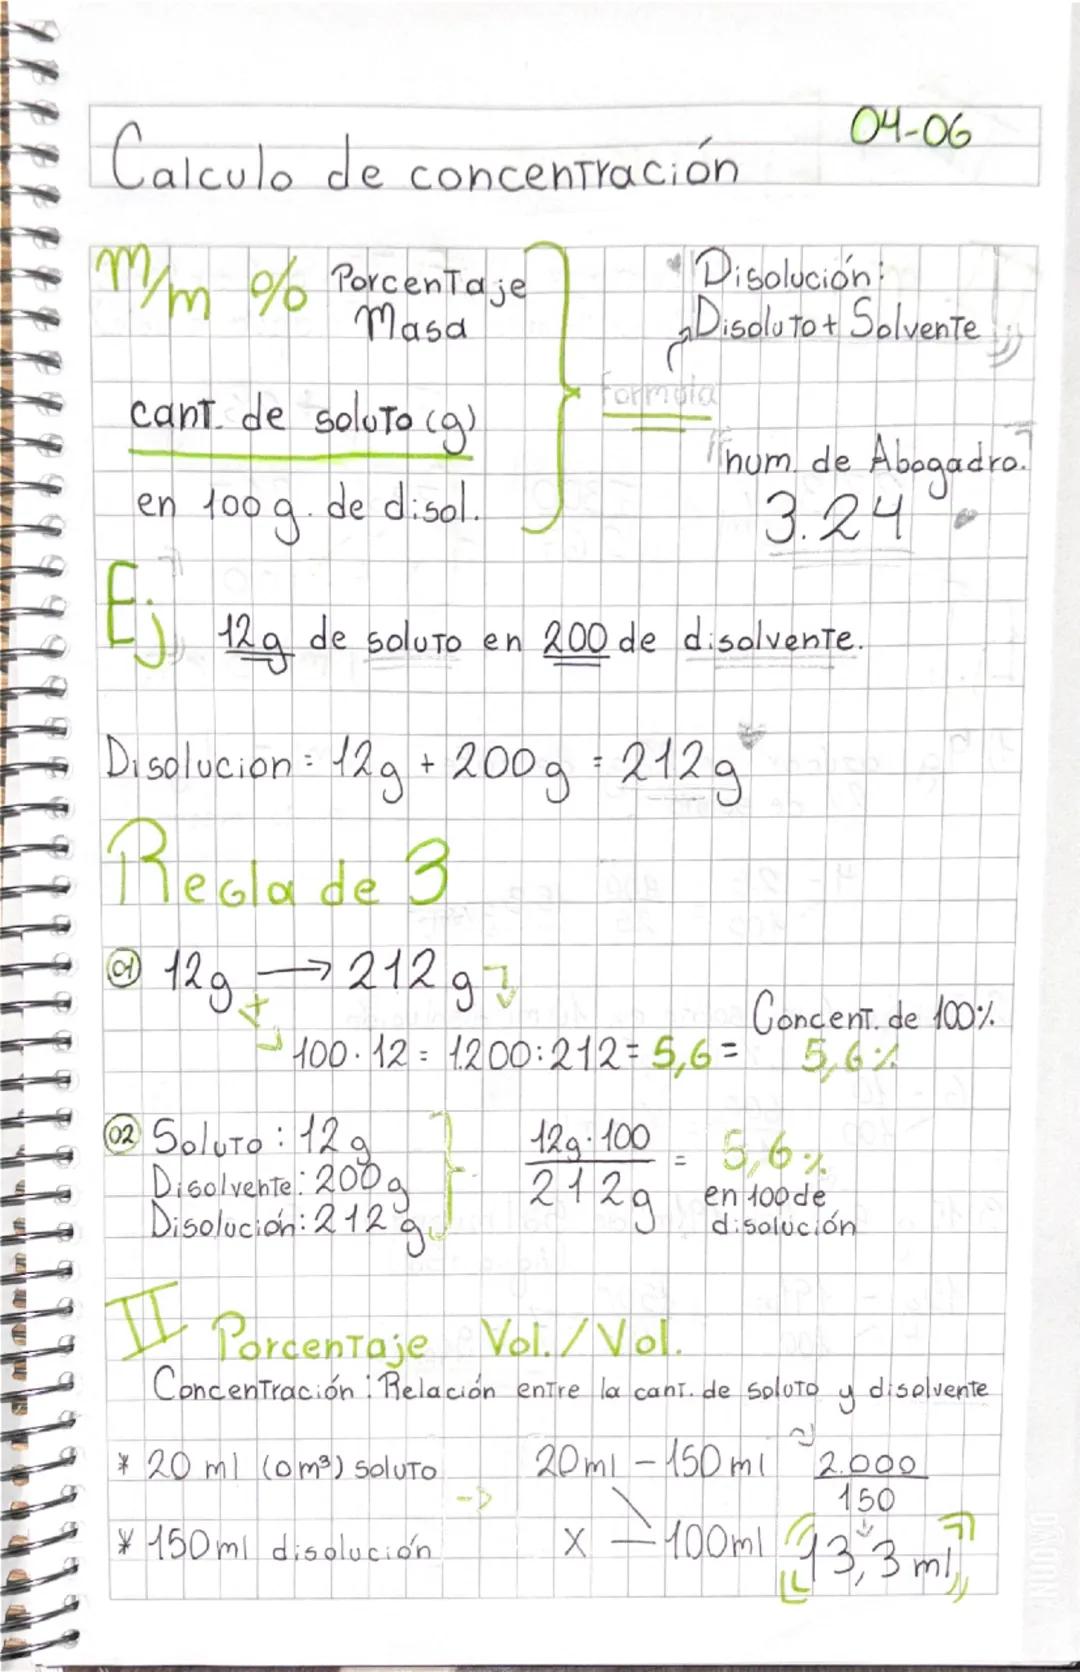 04-06
Calculo de concentración
m/m % Porcentaje
Masa
cant. de soluto (g)
en 100 g. de disol.
Disolución:
Disoluto + Solvente
Formula
"num. de Abogadro."
3.24
Ej 12g de soluto en 200 de disolvente.
Disolucion = 12g + 200g = 212g
Regla de 3
01 12g → 212g
100 · 12 = 1200 : 212 = 5,6 =
Concent. de 100%
5,6%
02 Soluto : 12g
Disolvente: 200g
Disolución: 212g
12g · 100
212g
= 5,6%
en 100 de
disolución
II Porcentaje Vol. / Vol.
Concentración : Relación entre la cant. de soluto y disolvente
* 20 ml (cm³) soluto
* 150ml disolución
20ml - 150ml
X - 100ml
2.000
150
13,3 ml